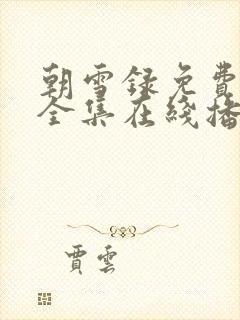 朝雪録免費
全集在綫播
賈雲